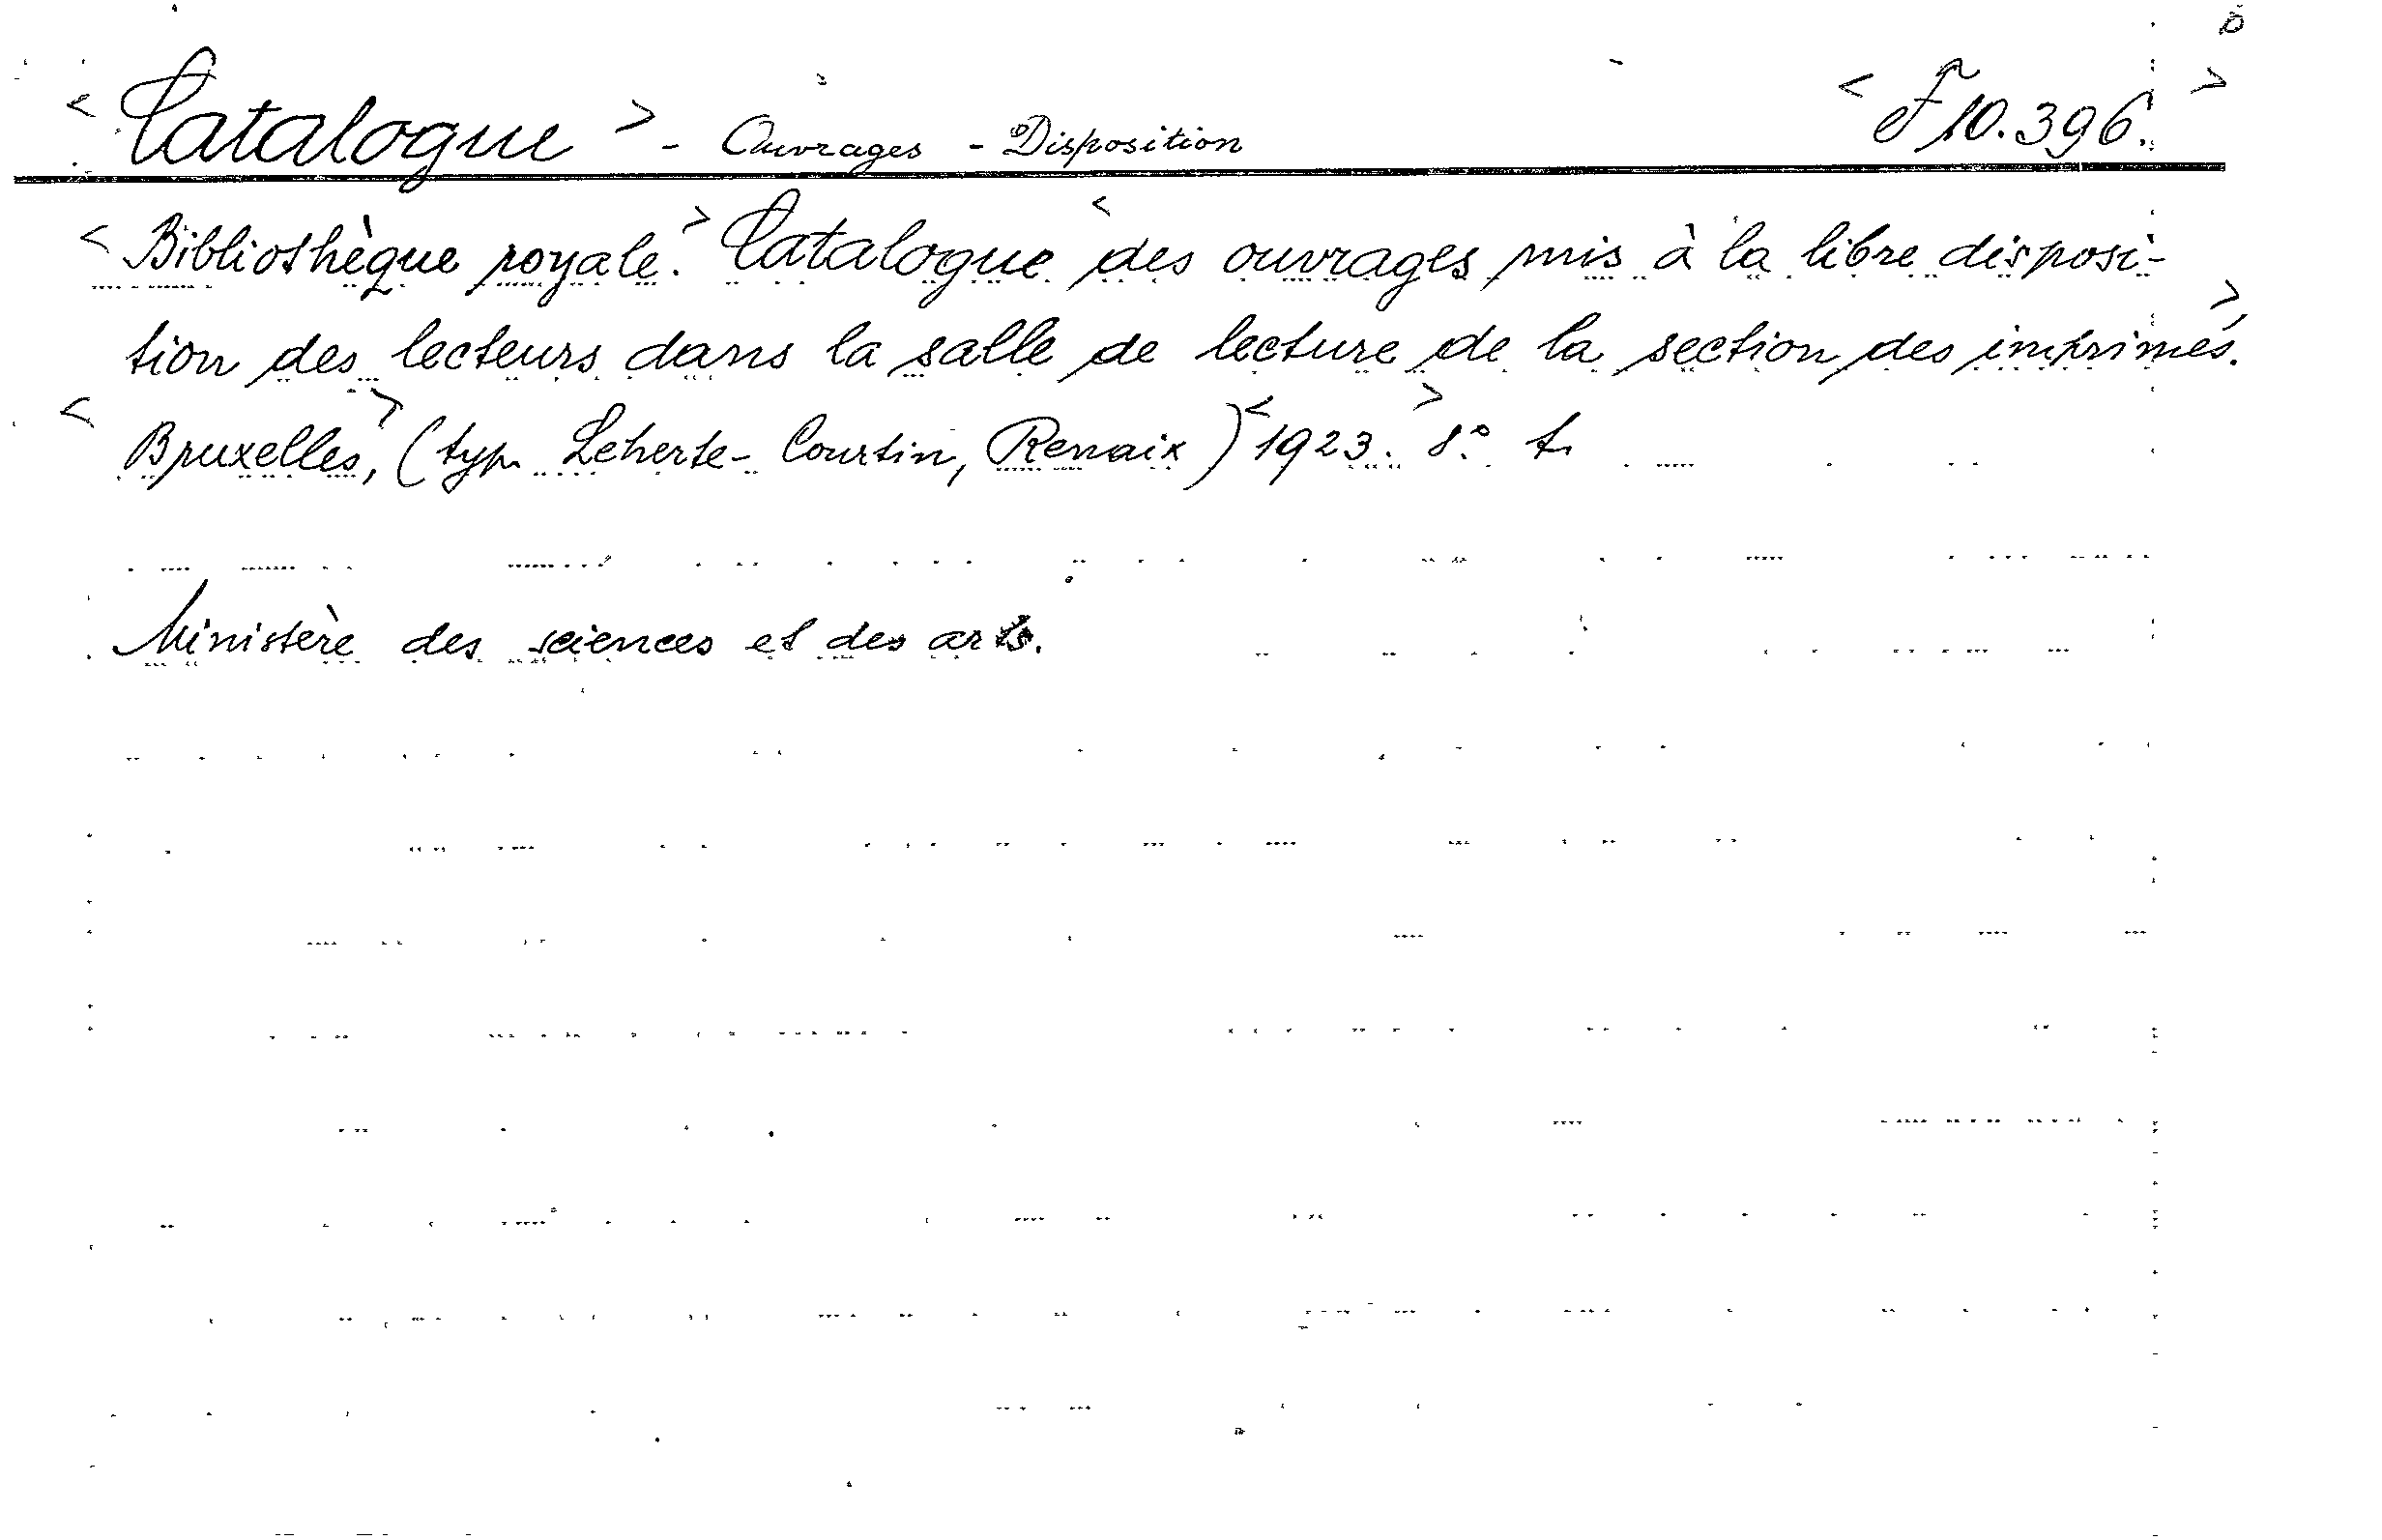 < Catalogue > - Ouvrages - Disposition < F 10.396. >
< Bibliothèque royale. > Catalogue < des ouvrages mis à la libre disposi-
tion des lecteurs dans la salle de lecture de la section des imprimés. >
< Bruxelles, > (typ. Leherte-Courtin, Renaix) < 1923. > 8° t.
Ministère des sciences et des arts.